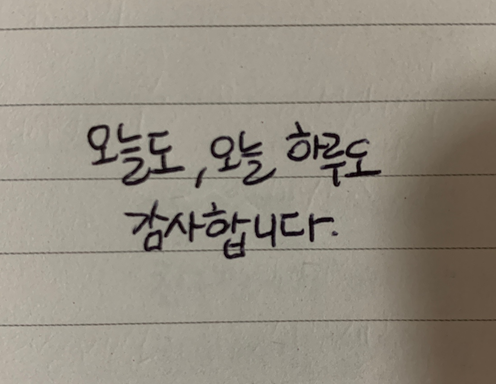 오늘도, 오늘 하루도
감사합니다.